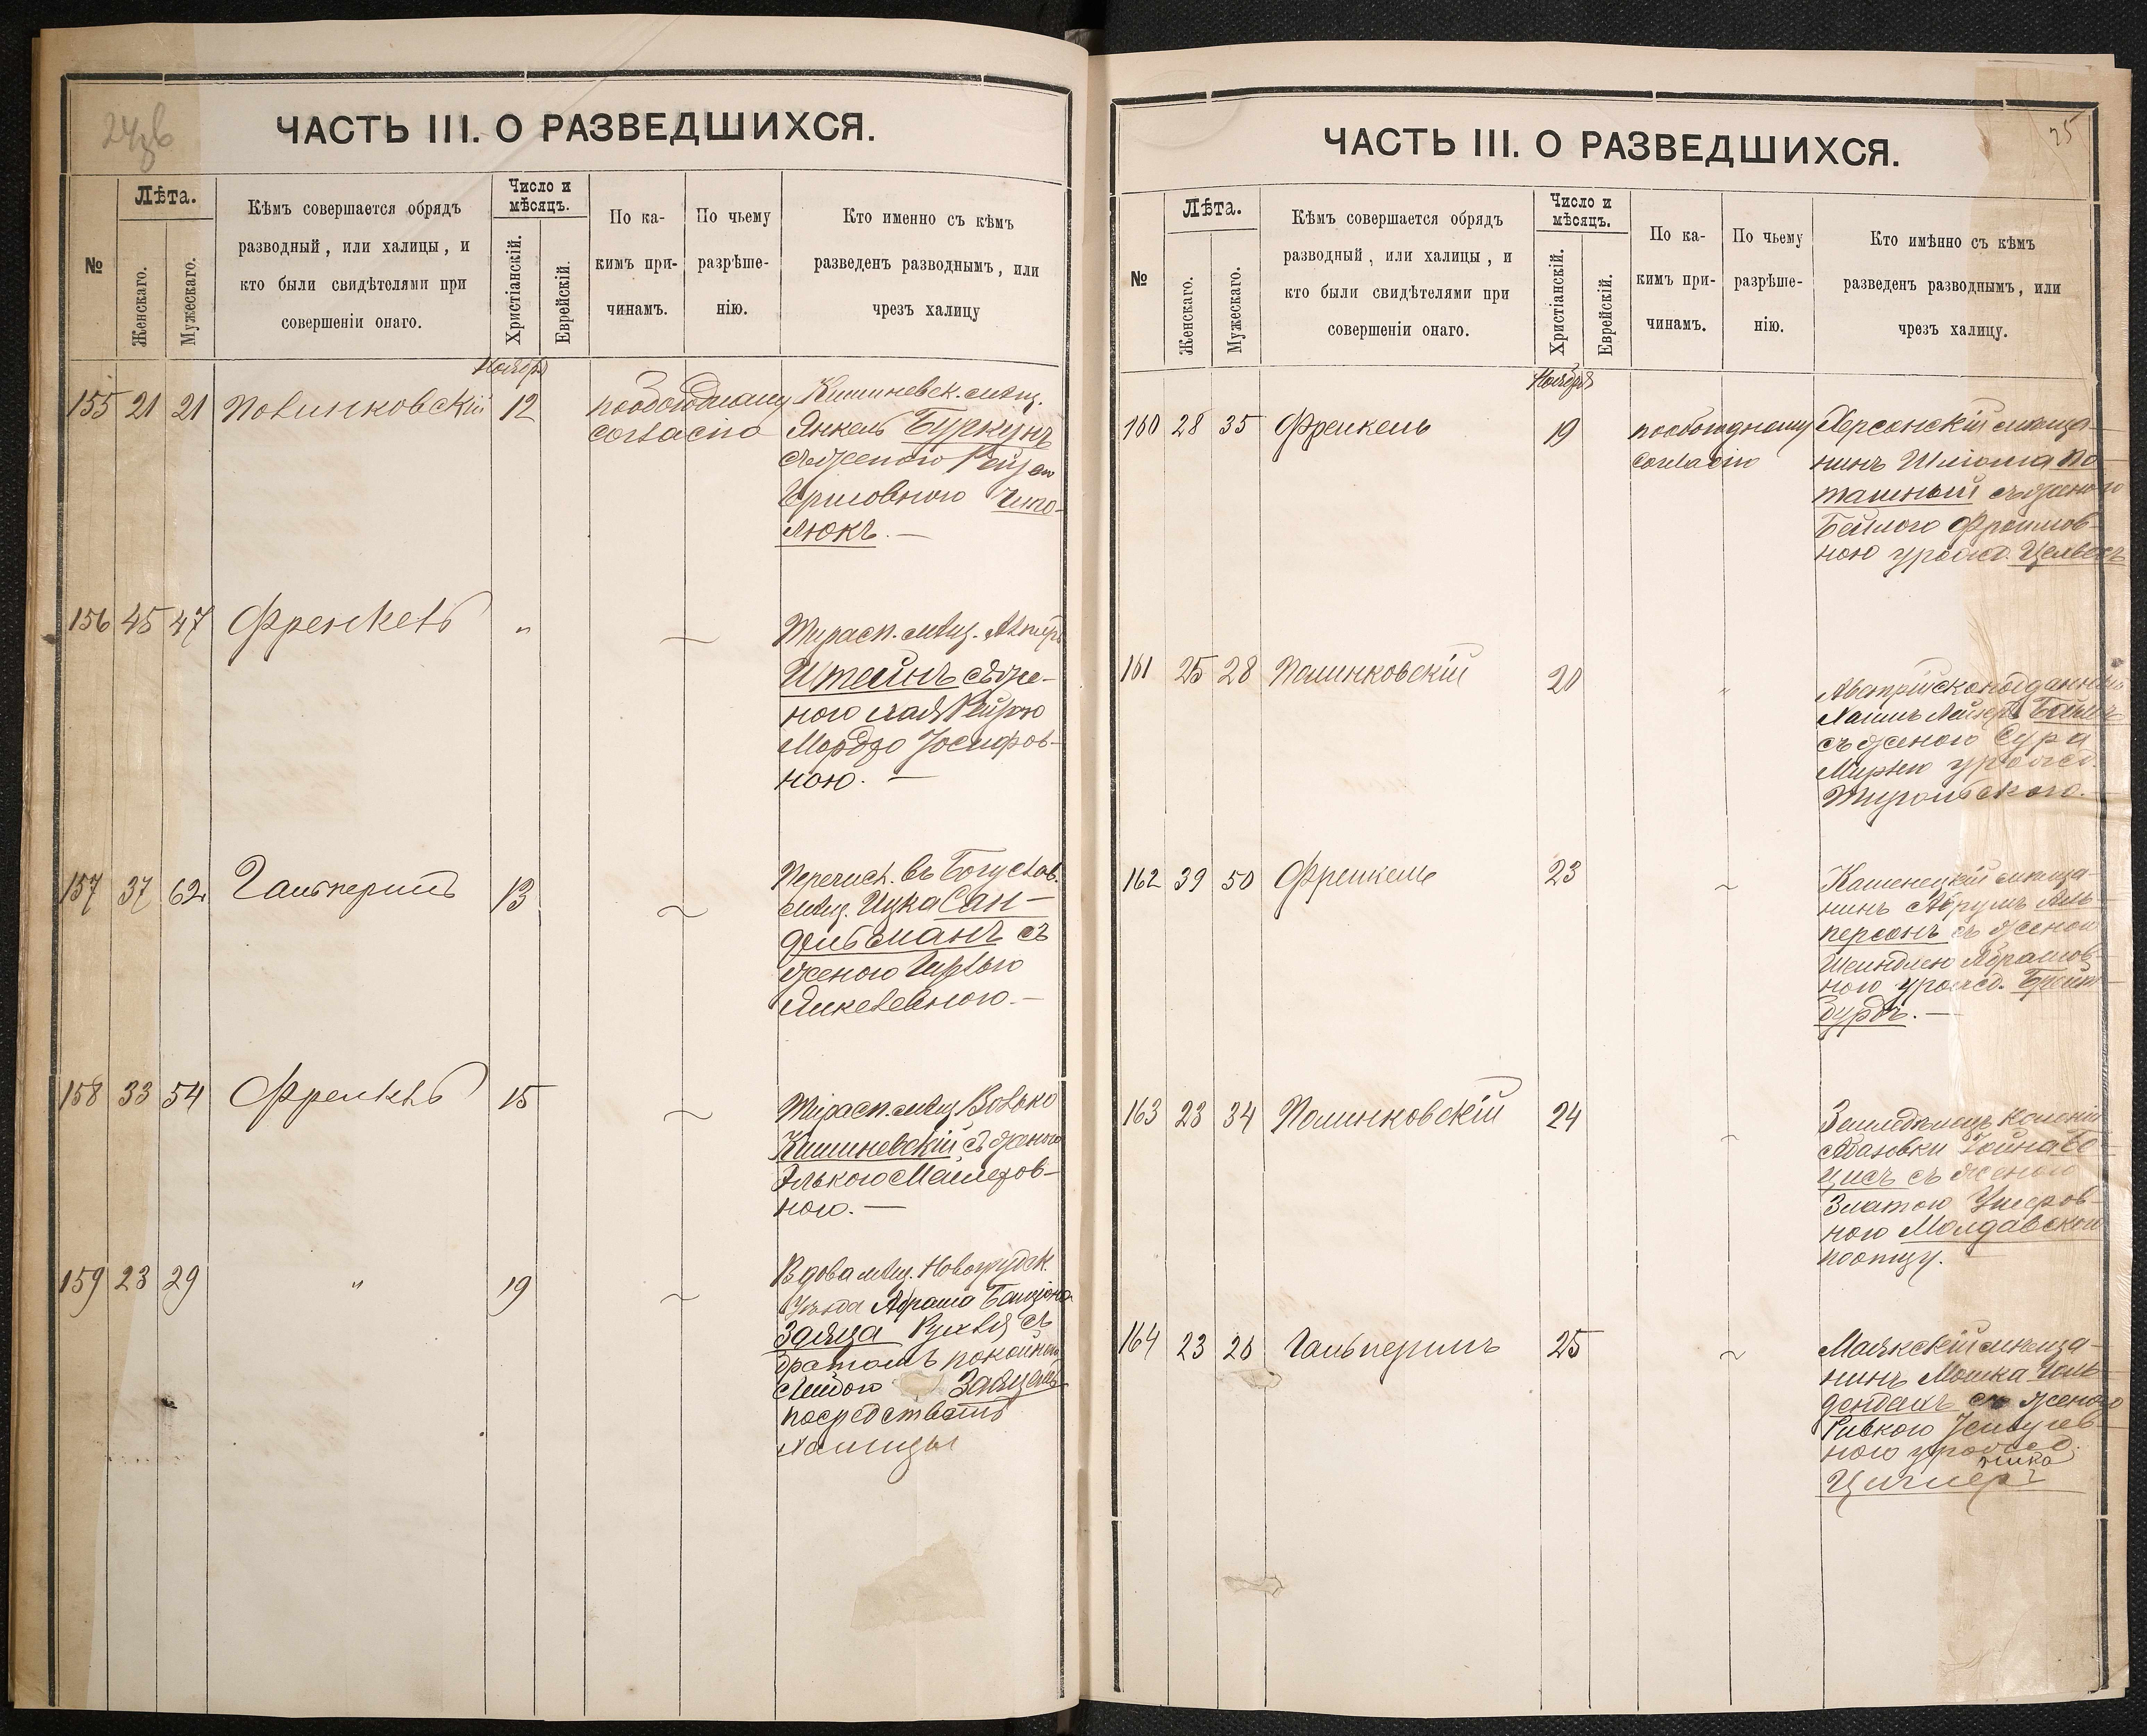 24об
ЧАСТЬ III. О РАЗВЕДШИХСЯ.
№
Лѣта.
Женскаго.
Мужескаго.
Кѣмъ совершается обрядъ
разводный, или халицы, и
кто были свидѣтелями при
совершеніи онаго.
Число и
мѣсяцъ.
Христіанскій.
Еврейскій.
По ка-
кимъ при-
чинамъ.
По чьему
разрѣше-
нію.
Кто именно съ кѣмъ
разведенъ разводнымъ, или
чрезъ халицу
Ноябрь
155 21 21 Полинковскій 12 по обоюдному Кишиневск. мѣщ.
согласію Янкель Буркунъ
съ женою Рейзею
Гершовною Чипо-
люкъ. —
156 45 47 Френкель " ~ Тирасп. мѣщ.
Штейнъ съ же-
ною Хая Рейзею
Іосифов-
ною. —
157 37 62 Гальперинъ 13 ~ Перечисл. въ Богуслав.
мѣщ. Ицка Сан-
дельманъ съ
женою
Янкелевною. —
158 33 54 Френкель 15 ~ Тирасп. мѣщ. Волько
Кишиневскій съ женою
Элькою Мейлеров-
ною. —
159 23 29 " 19 ~ Вдова мѣщ. Новогрудск.
уѣзда
Заяца Рухля съ
братомъ покойнаго
Лейбою Заяцемъ
посредствомъ
халицы
25
ЧАСТЬ III. О РАЗВЕДШИХСЯ.
№
Лѣта.
Женскаго.
Мужескаго.
Кѣмъ совершается обрядъ
разводный, или халицы, и
кто были свидѣтелями при
совершеніи онаго.
Число и
мѣсяцъ.
Христіанскій.
Еврейскій.
По ка-
кимъ при-
чинамъ.
По чьему
разрѣше-
нію.
Кто имѣнно съ кѣмъ
разведенъ разводнымъ, или
чрезъ халицу.
Ноябрь
160 28 35 Френкель 19 по обоюдному Херсонскій мѣща-
согласію нинъ Шліома По-
ташный съ женою
Бейлою Фроимов-
ною урожд.
161 25 28 Полинковскій 20 " Австрійскоподданный
Хаимъ Лейзеръ
съ женою Сура
Мирлею урожд.
162 39 50 Френкель 23 ~ Каменецкій мѣща-
нинъ Абрумъ Аль-
персонъ съ женою
Шейндлею Абрамов-
ною урожд. Брейт-
бурдъ. —
163 23 34 Полинковскій 24 ~ Земледѣлецъ колоніи
съ женою
Златою Ушеров-
ною Молдавскою
по отцу.
164 23 26 Гальперинъ 25 ~ Маякскій мѣща-
нинъ Мошка Голь-
денбахъ съ женою
Ривкою
ною урожд.
Циглеръ